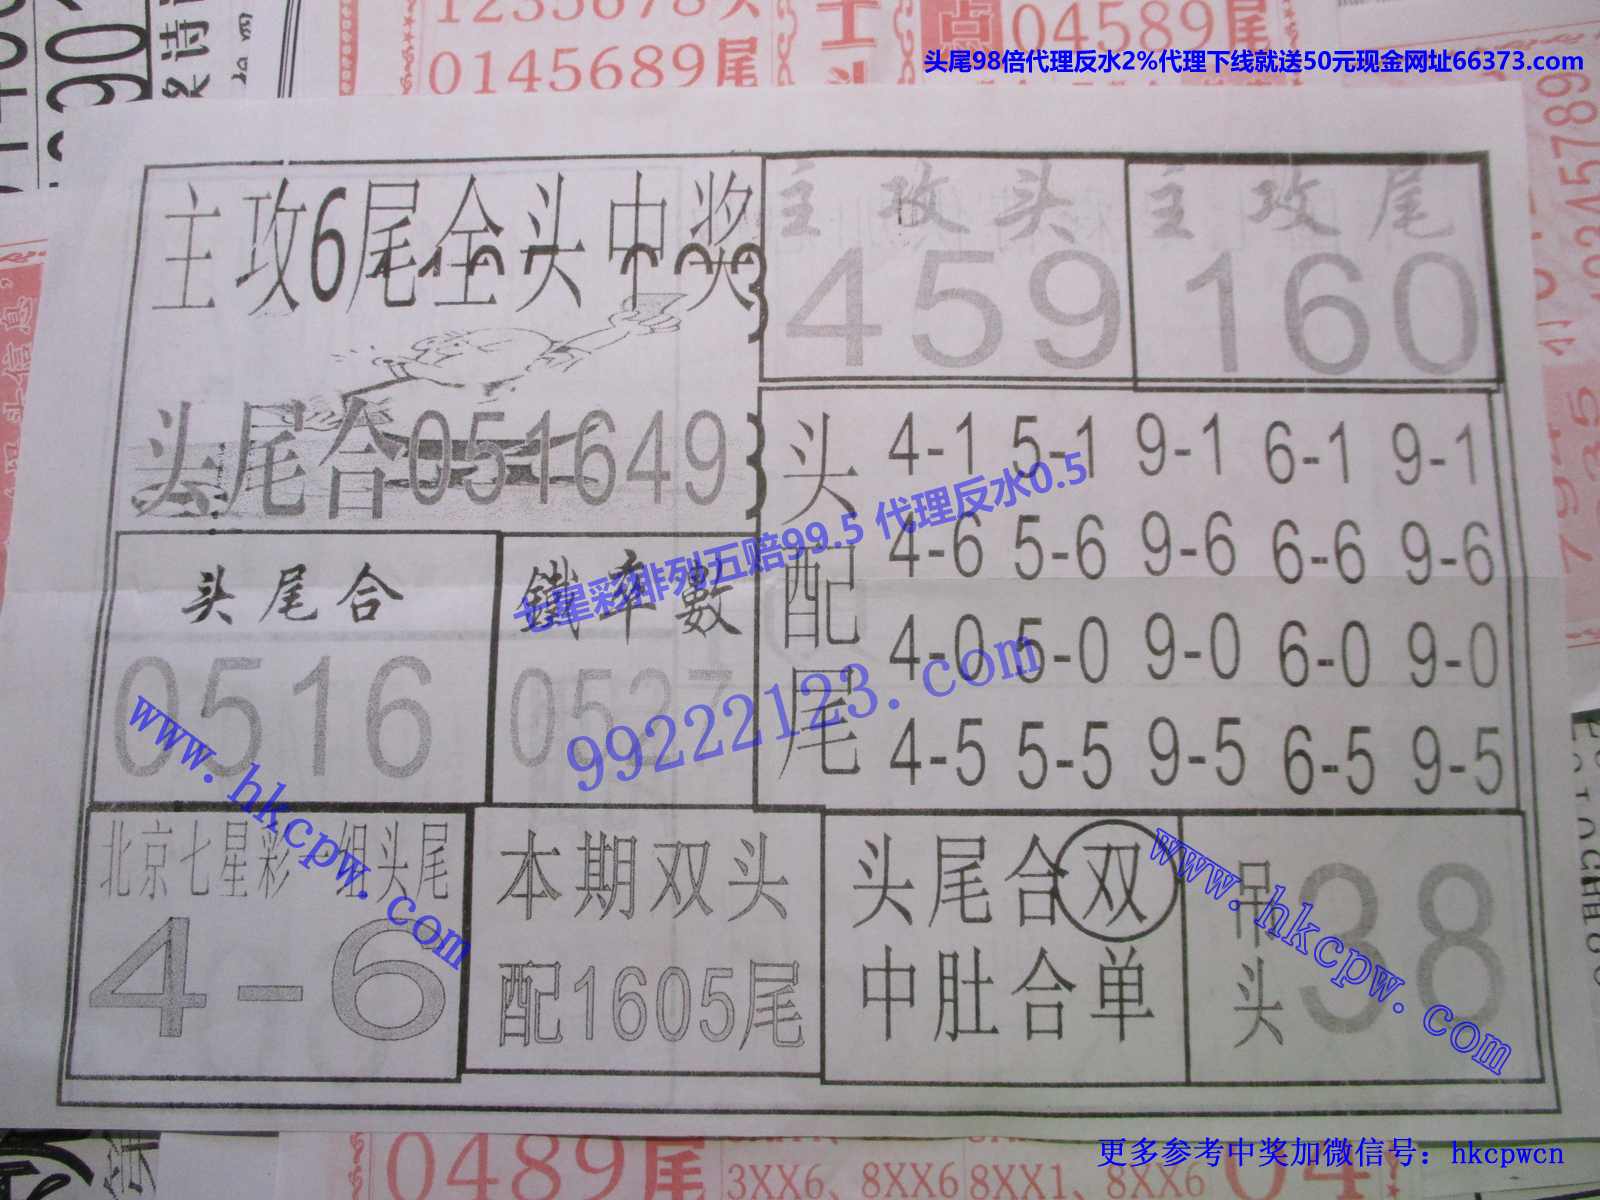 1235678头
0145689尾
点
04589尾
头尾98倍代理反水2%代理下线就送50元现金网址66373.com
主攻6尾全头中奖
主攻头
459
主攻尾
160
头尾合051649
头配尾
4-1 5-1 9-1 6-1 9-1
4-6 5-6 9-6 6-6 9-6
4-0 5-0 9-0 6-0 9-0
4-5 5-5 9-5 6-5 9-5
七星彩排列五赔99.5 代理反水0.5
头尾合
0516
鐵率數
0527
99222123.com
www.hkcpw.com
北京七星彩一组头尾
4-6
本期双头
配1605尾
头尾合双
中肚合单
吊头
38
www.hkcpw.com
0489尾
3XX6、8XX6
8XX1、8XX6
04
更多参考中奖加微信号：hkcpwcn